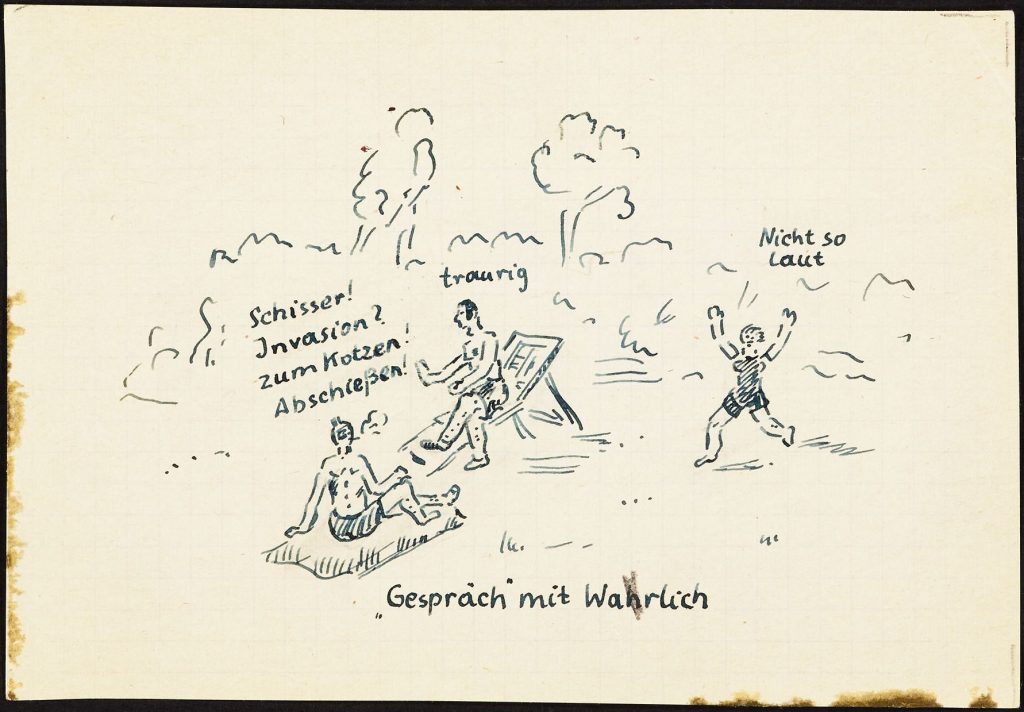 Nicht so
laut
traurig
Schisser!
Invasion?
zum Kotzen!
Abschießen!
„Gespräch" mit Wahrlich